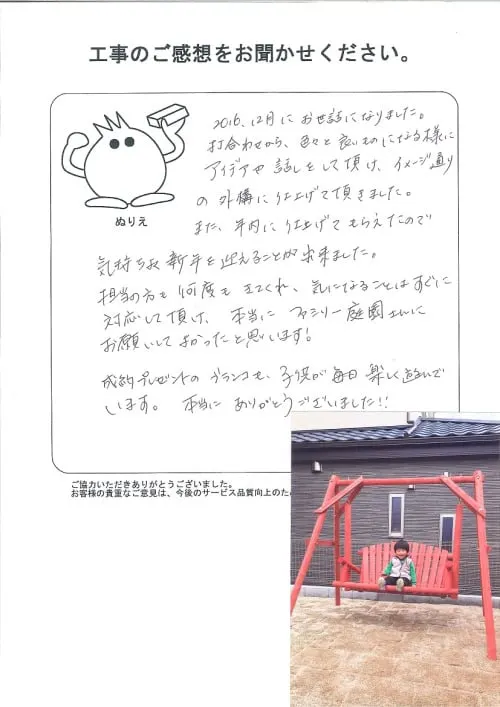 工事のご感想をお聞かせください。
ぬりえ
2016.12月にお世話になりました。
打合わせから、色々と良いものになる様に
アイデアや話しをして頂け、イメージ通り
の外構に仕上げて頂きました。
また、年内に仕上げてもらえたので
気持ちよく新年を迎えることが出来ました。
担当の方も何度もきてくれ、気になることはすぐに
対応して頂け、本当にファミリー庭園さんに
お願いしてよかったと思います!
成約プレゼントのブランコも、子供が毎日楽しく遊んで
います。本当にありがとうございました!!
ご協力いただきありがとうございました。
お客様の貴重なご意見は、今後のサービス品質向上のため